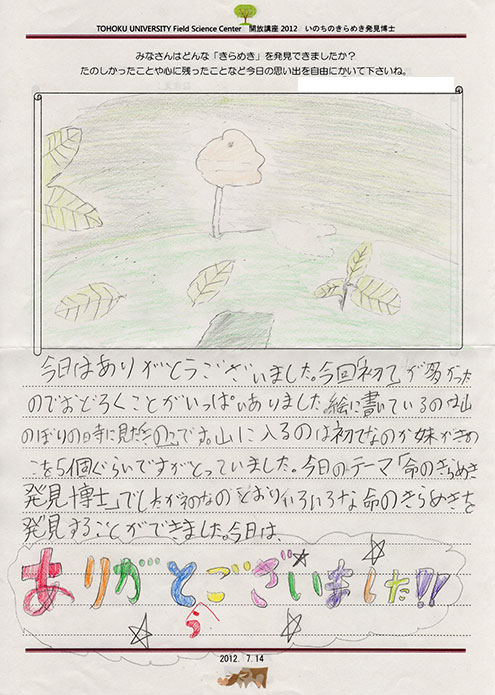 TOHOKU UNIVERSITY Field Science Center 開放講座 2012 いのちのきらめき発見博士
みなさんはどんな「きらめき」を発見できましたか？
たのしかったことや心に残ったことなど今日の思い出を自由にかいて下さいね。
今日はありがとうございました。今回「初めて」が多かった
のでおどろくことがいっぱいありました絵に書いているのは山
のぼりの時に見たきのこです。山に入るのは初てなのか妹がきの
こを5個ぐらいですがとっていました。今日のテーマ「命のきらめき
発見博士」でしたがそのなのどおりいろいろな命のきらめきを
発見することができました。今日は、
ありがとうございました!!
2012. 7.14